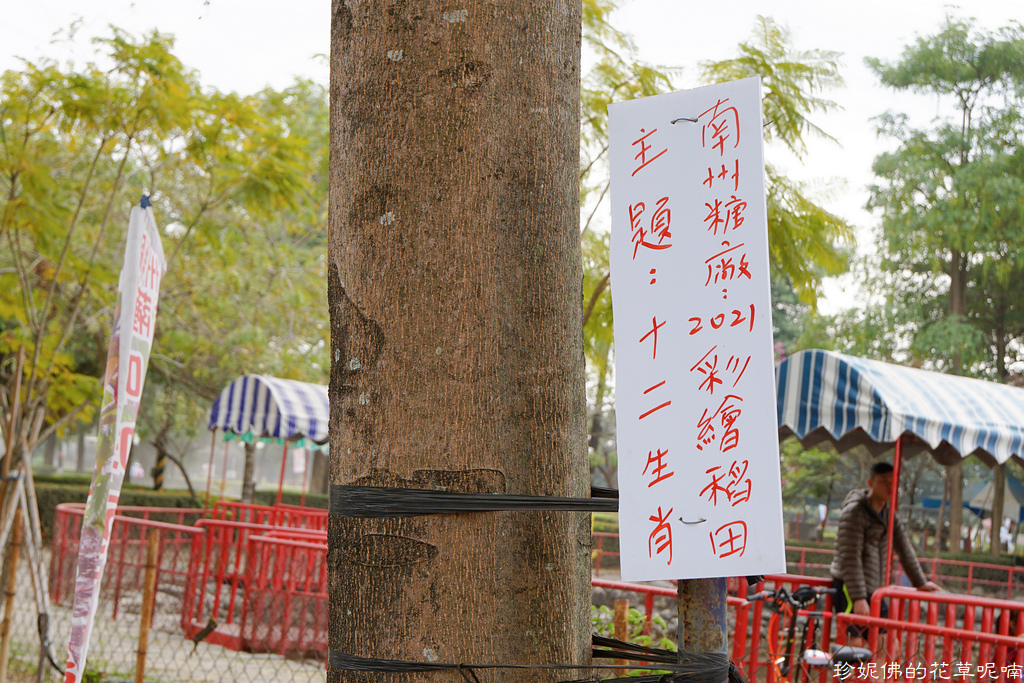 南州糖廠：2021彩繪稻田
主題：十二生肖
珍妮佛的花草呢喃